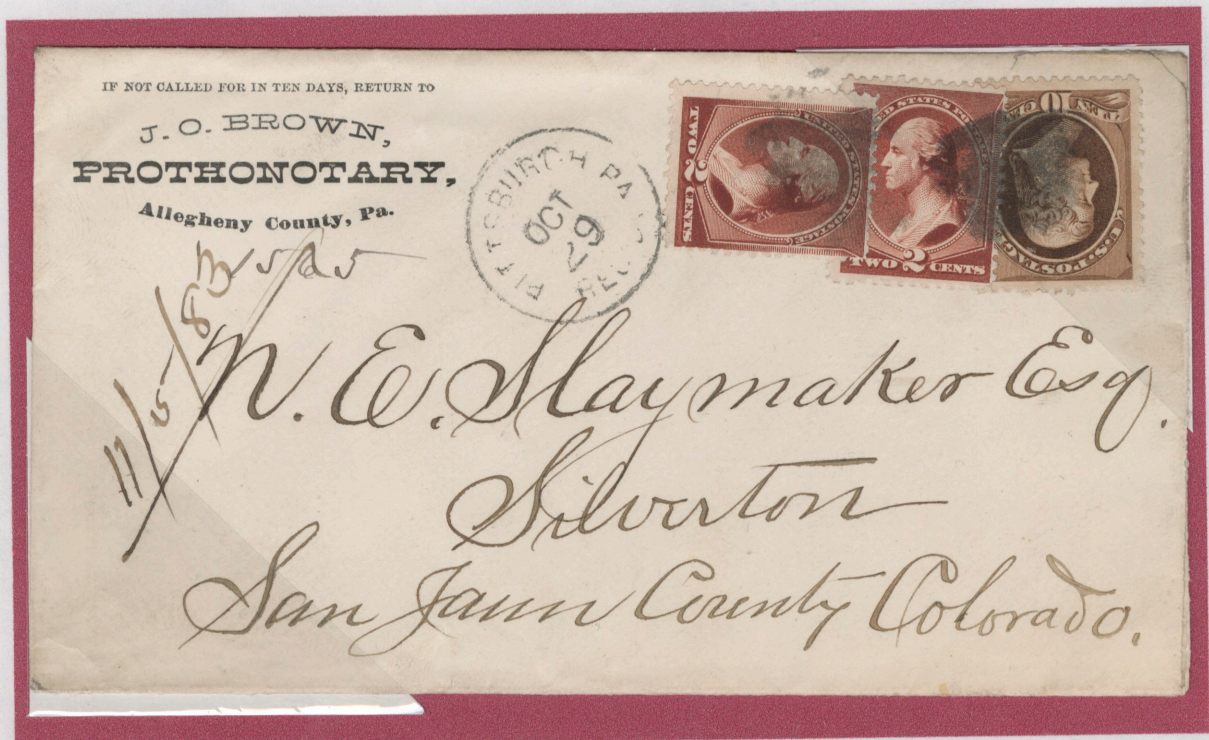 IF NOT CALLED FOR IN TEN DAYS, RETURN TO
J. O. BROWN,
PROTHONOTARY,
Allegheny County, Pa.
PITTSBURGH PA
OCT
29
REC
TWO 2 CENTS
UNITED STATES POSTAGE
UNITED STATES POSTAGE
TWO 2 CENTS
10
U.S. POSTAGE
11/15/83
N. E. Slaymaker Esq.
Silverton
San Jaun County Colorado.